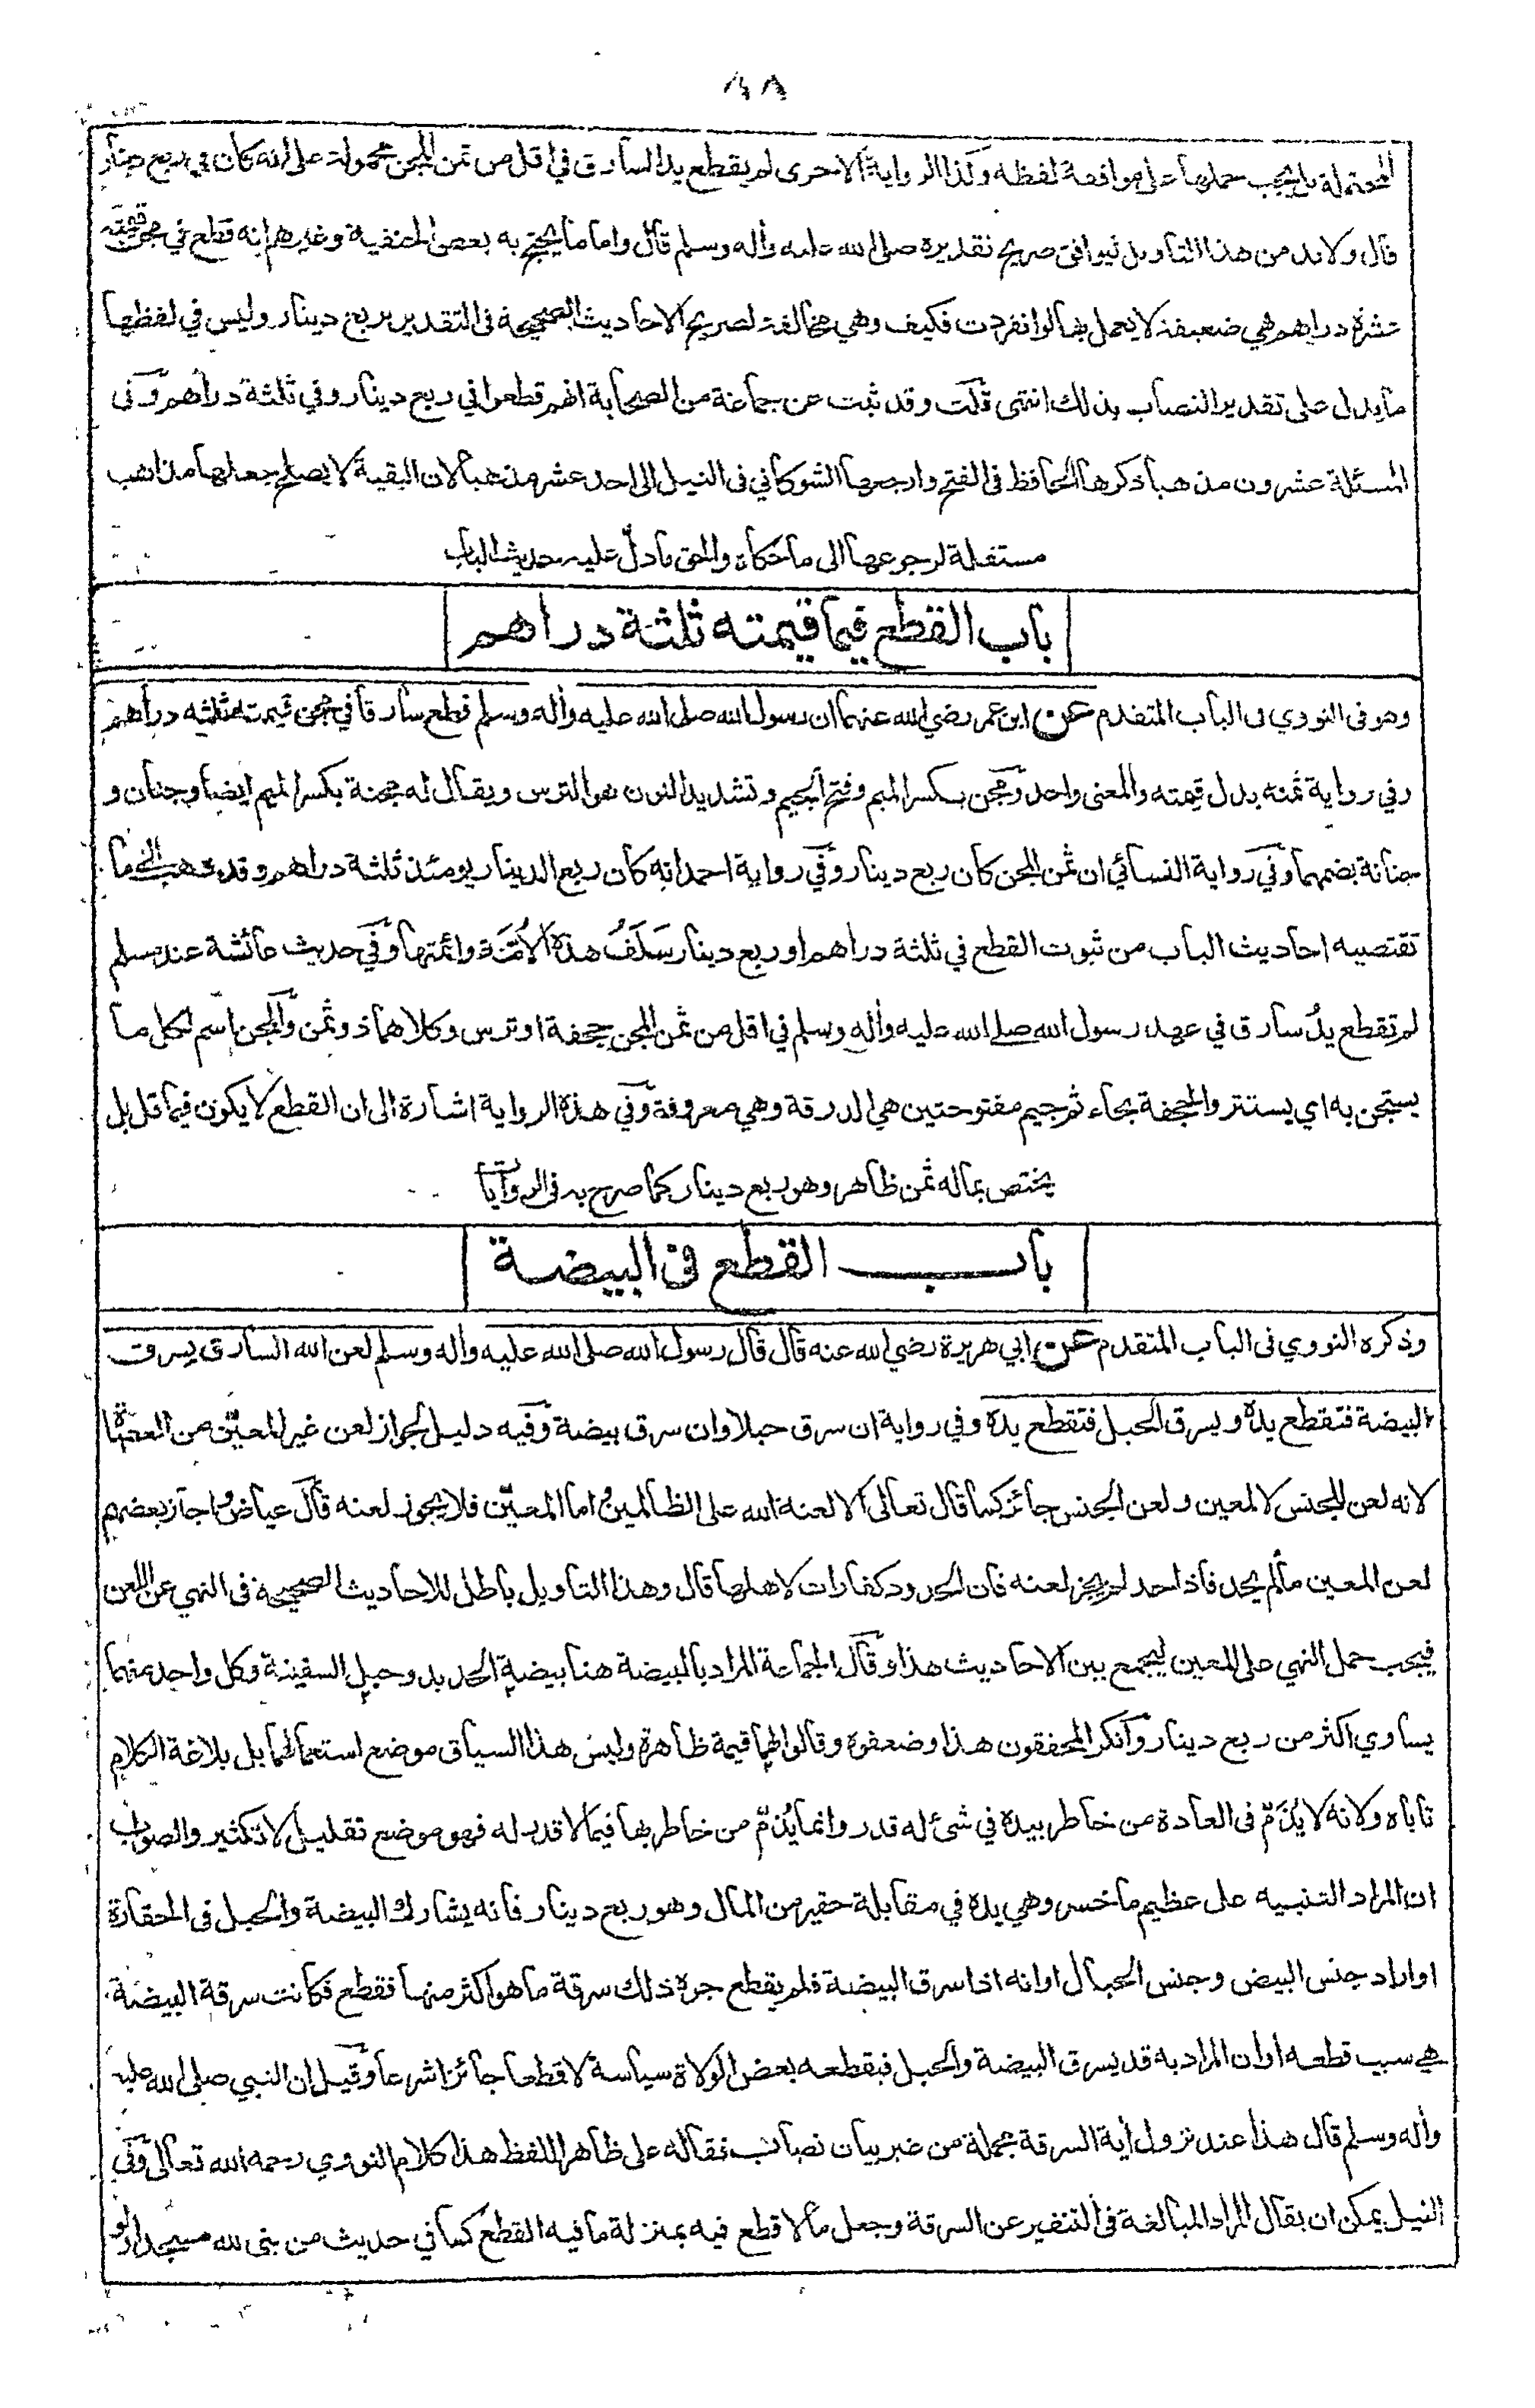 ٤٨
المحتملة بل يجب حملها على موافقة لفظه وكذا الرواية الاخرى لم يقطع يد السارق في اقل من ثمن المجن محمولة على انه كان في ربع دينار
قال ولابد من هذا التاويل ليوافق صريح تقديره صلى الله عليه واله وسلم قال واما ما يحتج به بعض الحنفية وغيرهم انه قطع في مجن قيمته
عشرة دراهم هي ضعيفة لا يعمل بها لوانفردت فكيف وهي مخالفة لصريح الاحاديث الصحيحة في التقدير بربع دينار وليس في لفظها
ما يدل على تقدير النصاب بذلك انتهى قلت وقد ثبت عن جماعة من الصحابة انهم قطعوا في ربع دينار وفي ثلثة دراهم وفي
المسئلة عشرون مذهبا ذكرها الحافظ في الفتح وارجعها الشوكاني في النيل الى احد عشر مذهبا لان البقية لا يصلح جعلها مذاهب
مستقلة لرجوعها الى ما حكاه والحق ما دلّ عليه حديث الباب
باب القطع فيما قيمته ثلثة دراهم
وهو فى النووي فى الباب المتقدم عن ابن عمر رضي الله عنهما ان رسول الله صلى الله عليه واله وسلم قطع سارقا في مجن قيمته ثلثة دراهم
وفي رواية ثمنه بدل قيمته والمعنى واحد ومجن بكسر الميم وفتح الجيم وتشديد النون هو الترس ويقال له مجنة بكسر الميم ايضا وجنان و
جنانة بضمهما وفي رواية النسائي ان ثمن المجن كان ربع دينار وفي رواية احمد انه كان ربع الدينار يومئذ ثلثة دراهم وقد ذهب الى ما
تقتضيه احاديث الباب من ثبوت القطع في ثلثة دراهم او ربع دينار سَلَفُ هذه الاُمّة وائمتها وفي حديث عائشة عند مسلم
لم تقطع يدُ سارق في عهد رسول الله صلى الله عليه واله وسلم في اقل من ثمن المجن حجفة او ترس وكلاهما ذو ثمن والمجن اسم لكل ما
يستجن به اي يستتر والحجفة بحاء ثم جيم مفتوحتين هي الدرقة وهي معروفة وفي هذه الرواية اشارة الى ان القطع لا يكون فيما قل بل
يختص بماله ثمن ظاهر وهو ربع دينار كما صرح به فى الروايات
باب القطع فى البيضة
وذكره النووي فى الباب المتقدم عن ابي هريرة رضي الله عنه قال قال رسول الله صلى الله عليه واله وسلم لعن الله السارق يسرق
البيضة فتقطع يده ويسرق الحبل فتقطع يده وفي رواية ان سرق حبلا وان سرق بيضة وفيه دليل لجواز لعن غير المعيّن من العصاة
لانه لعن للجنس لا لمعين ولعن الجنس جائز كما قال تعالى الا لعنة الله على الظالمين واما المعيّن فلا يجوز لعنه قال عياض واجاز بعضهم
لعن المعين ما لم يحد فاذا حد لم يجز لعنه فان الحدود كفارات لاهلها قال وهذا التاويل باطل للاحاديث الصحيحة فى النهي عن اللعن
فيجب حمل النهي على المعين ليجمع بين الاحاديث هذا وقال الجماعة المراد بالبيضة هنا بيضة الحديد وحبل السفينة وكل واحد منهما
يساوي اكثر من ربع دينار وانكر المحققون هذا وضعفوه وقالوا لهما قيمة ظاهرة وليس هذا السياق موضع استعمالهما بل بلاغة الكلام
تاباه ولانه لا يُذَمّ فى العادة من خاطر بيده في شئ له قدر وانما يُذمّ من خاطر بها فيما لا قدر له فهو موضع تقليل لا تكثير والصواب
ان المراد التنبيه على عظيم ما خسر وهي يده في مقابلة حقير من المال وهو ربع دينار فانه يشارك البيضة والحبل فى الحقارة
او اراد جنس البيض وجنس الحبال او انه اذا سرق البيضة فلم يقطع جره ذلك سرقة ما هو اكثر منها فقطع فكانت سرقة البيضة
هي سبب قطعه او ان المراد به قد يسرق البيضة والحبل فيقطعه بعض الولاة سياسة لا قطعا جائزا شرعا وقيل ان النبي صلى الله عليه
واله وسلم قال هذا عند نزول أية السرقة مجملة من غير بيان نصاب فقاله على ظاهر اللفظ هذا كلام النووي رحمه الله تعالى وفي
النيل يمكن ان يقال المراد المبالغة فى التنفير عن السرقة وجعل ما لا قطع فيه بمنزلة ما فيه القطع كما في حديث من بنى لله مسجدا ولو